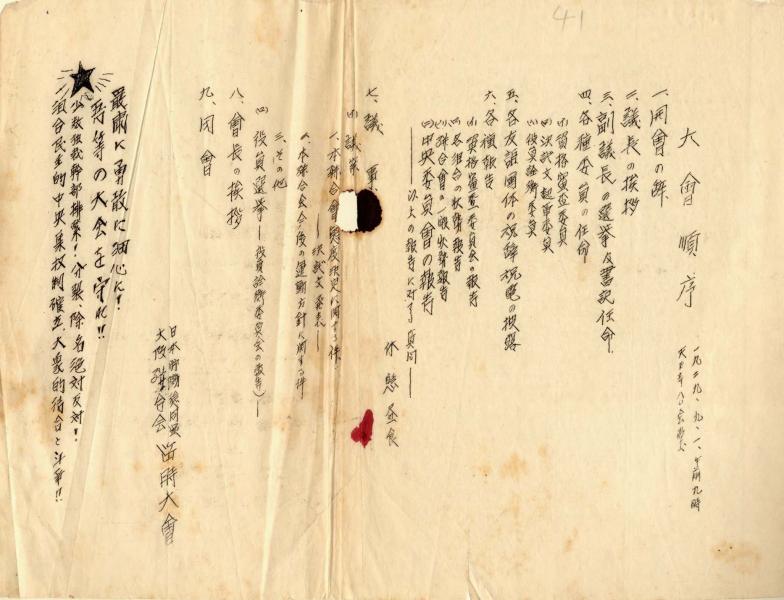 41
大會順序
一九二九、九、一、午前九時
天王寺公会堂
一、開會の辞
二、議長の挨拶
三、副議長の選挙及書記任命
四、各種委員の任命
(イ)資格審査委員
(ロ)決議文起草委員
(ハ)役員詮衡委員
五、各友誼団体の祝辞祝電の披露
六、各種報告
(イ)資格審査委員会の報告
(ロ)各組合の状勢報告
(ハ)聯合会の一般状勢報告
(ニ)中央委員會の報告
——以上の報告に対する質問——
休憩昼食
七、議事
(イ)議案
一、本聯合會に関する件
——決議文発表——
二、本聯合会今後の運動方針に関する件
三、その他
(ロ)役員選挙——役員詮衡委員会の報告)——
八、會長の挨拶
九、閉會
日本労働総同盟
大阪聯合会 臨時大會
厳粛に勇敢に細心に!
吾等の大会を守れ!!
少数独裁幹部排撃!分裂、除名絶対反対!
組合民主的中央集权制確立、大衆的待合と斗争!!